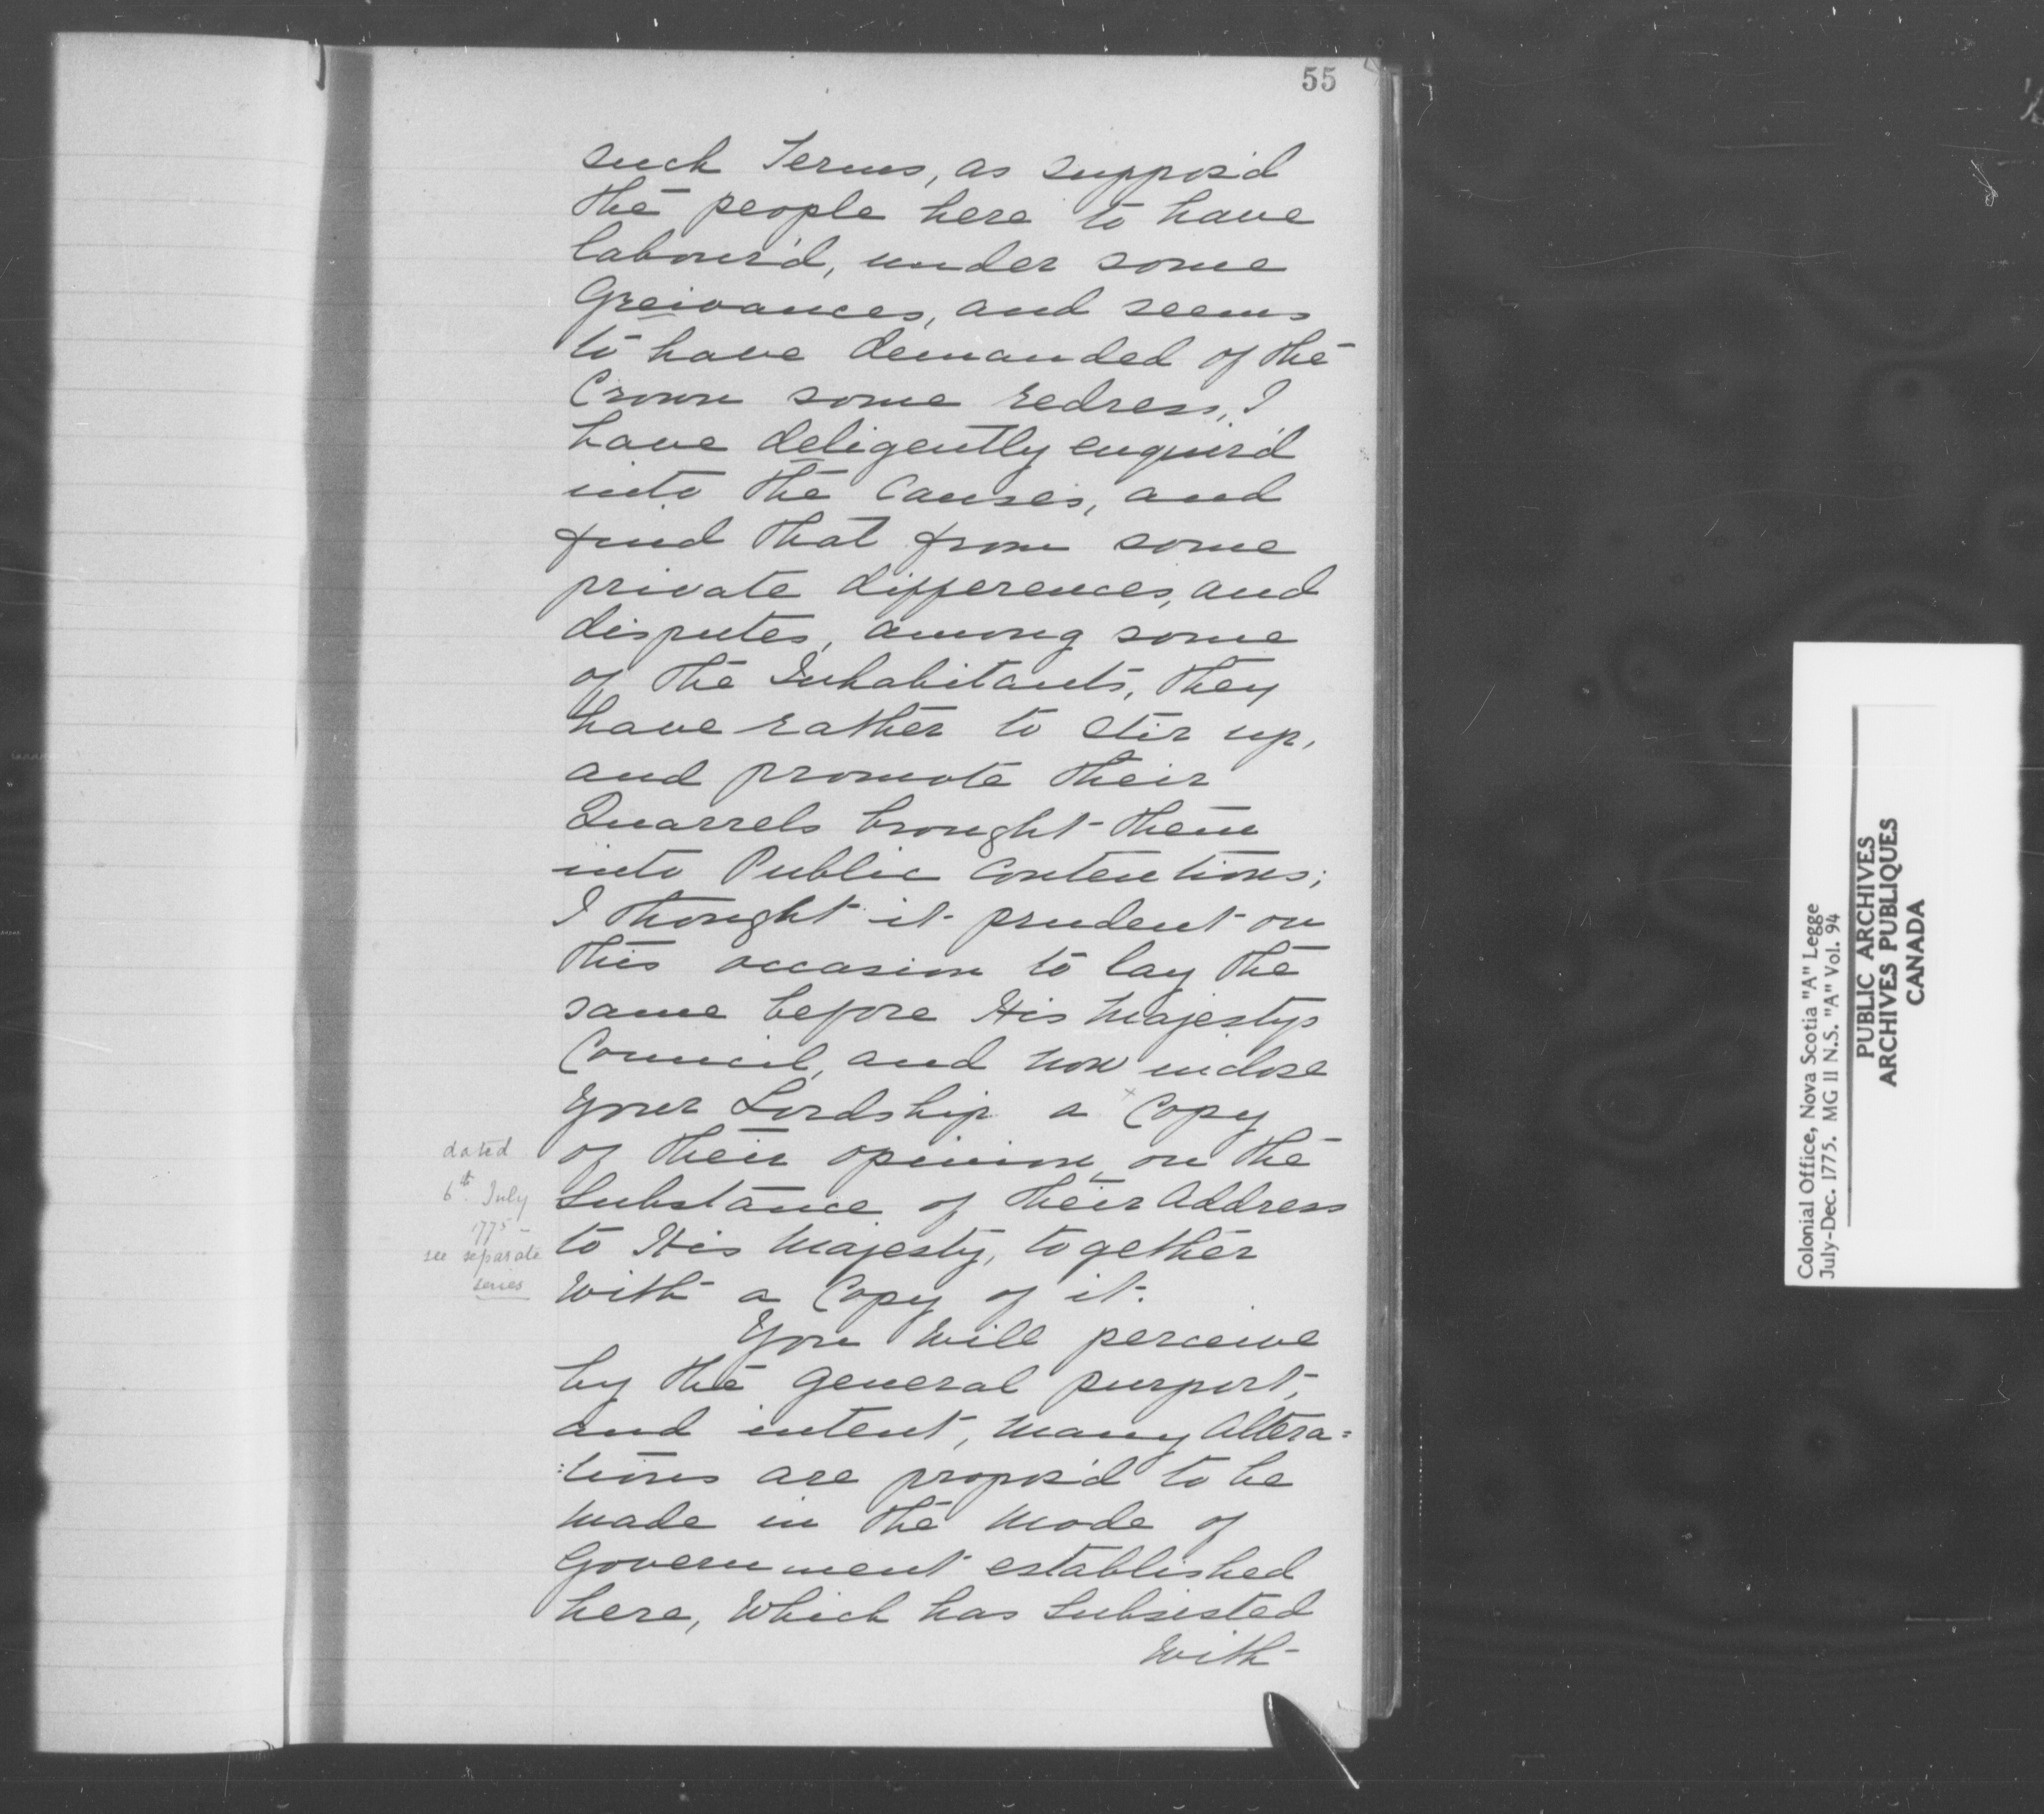 55
such Terms, as suppos'd
the people here to have
labour'd, under some
Greivances, and seems
to have demanded of the
Crown some redress, I
have deligently enquir'd
into the Causes, and
find that from some
private differences, and
disputes, among some
of the Inhabitants, they
have rather to stir up,
and promote their
Quarrels brought them
into Public Contentions;
I thought it prudent on
this occasion to lay the
same before His Majestys
Council, and now inclose
Your Lordship a × Copy
of their opinion, on the
Substance of their Address
to His Majesty, together
With a Copy of it.
You Will perceive
by the general purport,
and intent, many altera=
:tions are propos'd to be
made in the mode of
Government established
here, Which has Subsisted
With
dated
6th July
1775 -
see separate
series
Colonial Office, Nova Scotia "A" Legge
July-Dec. 1775. MG 11 N.S. "A" Vol. 94
PUBLIC ARCHIVES
ARCHIVES PUBLIQUES
CANADA